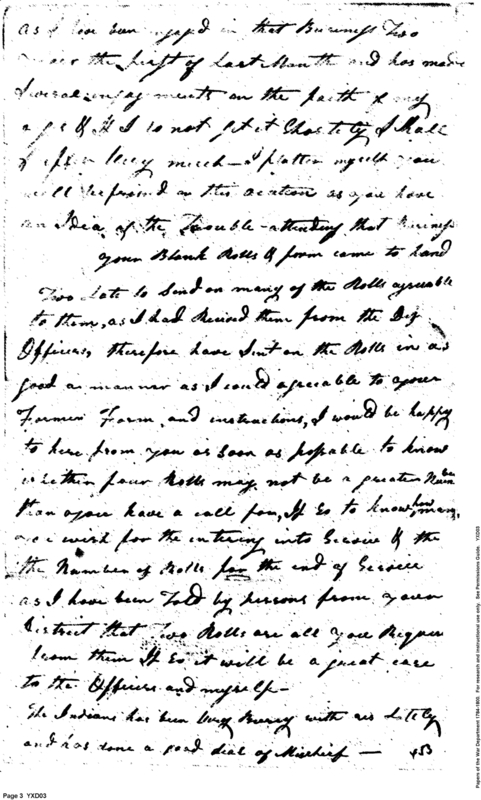 as I have been engaged in that Bureness Two
the first of Last Month and has made
Several engagements on the faith of my
& If I do not get it Shortely I Shall
Suffer Very much — I flatter myself you
will befriend on this ocation as you have
an Idea of the Trouble attending that Buriness
your Blank Rolls & form came to hand
Two Late to Send on many of the Rolls agreable
to them, as I had Recived them from the Dif
Officers, therefore have Sent on the Rolls in as
good a manner as I could agreable to your
Former Form, and instructions, I would be happy
to here from you as Soon as possable to know
whether four Rolls may not be a greater Number
than you have a call for, If So to know how many
you wish for the entering into Service & the
the Number of Rolls for the end of Service
as I have been Told by persons from your
District that Two Rolls are all you Requer
from them If So it will be a great ease
to the Officers and myself —
The Indians has been Very Buresy with us Lately
and has done a good deal of Mischief —
Page 3 YXD03
Papers of the War Department 1784-1800. For research and instructional use only. See Permissions Guide. YXD03